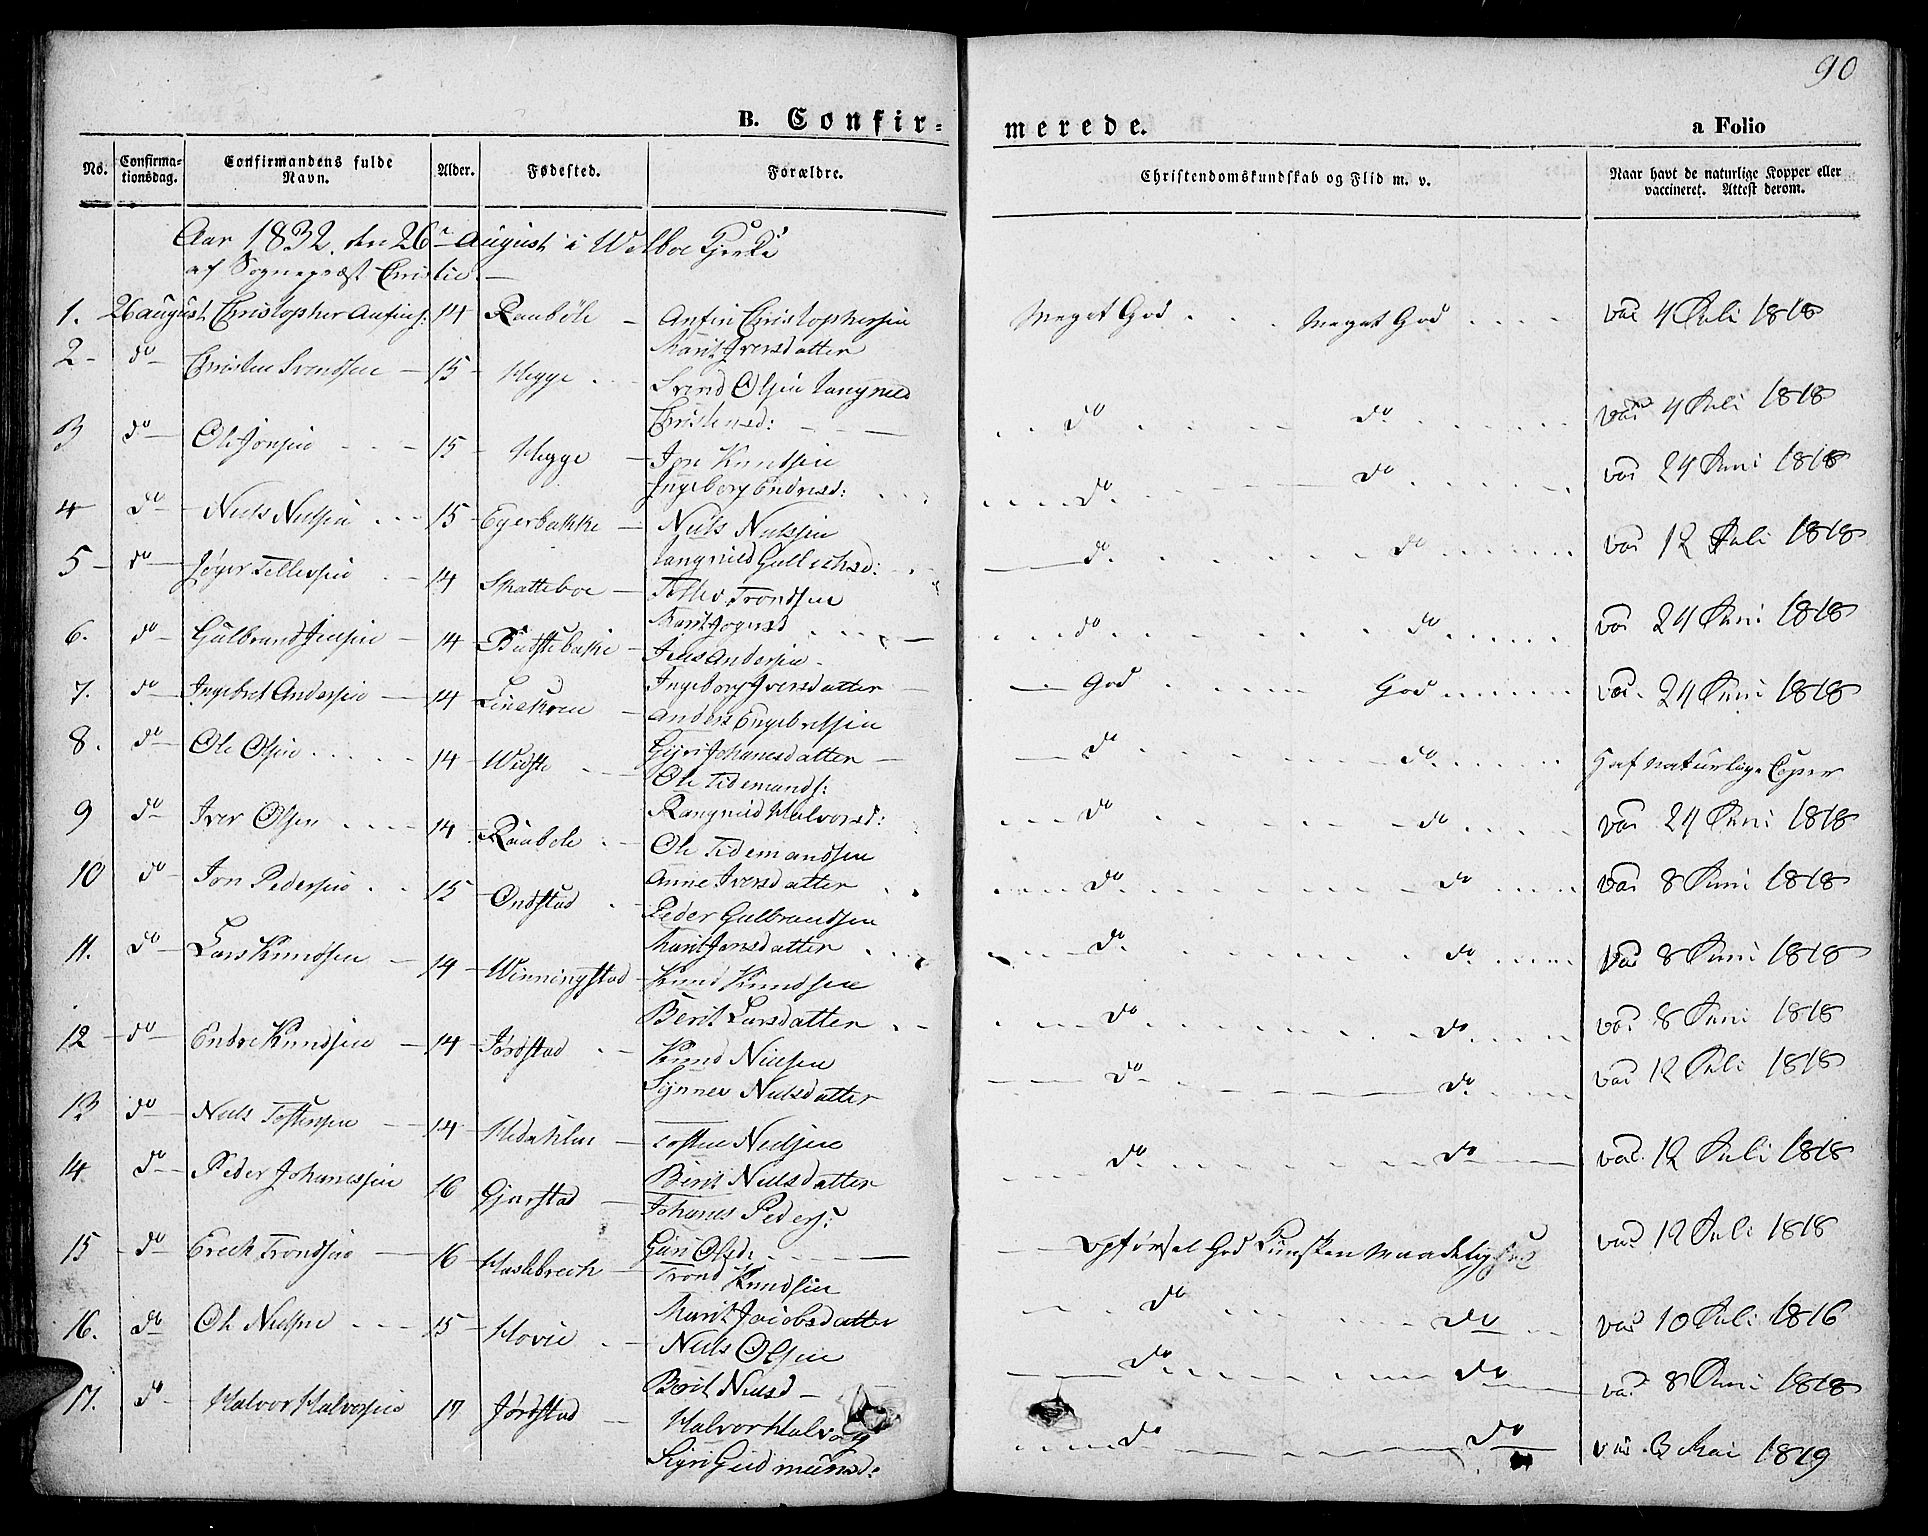 90
B. Confir=
merede.
a Folio
No.
Confirma-
tionsdag.
Confirmandens fulde
Navn.
Alder.
Fødested.
Forældre.
Christendomskundskab og Flid m. v.
Naar havt de naturlige Kopper eller
vaccineret. Attest derom.
Aar 1832 den 26 August i Wolboe Kjerke
af Sognepræst Christie.
1. 26 august Christopher Anfins: 14 Raubøle Anfin Christophersen Meget God Meget God vac 4 Juli 1818
Marit Iversdatter
2 do Christen Svendsen 15 Hegge Svend Olsen Rangnild do do vac 4 Juli 1818
Christensd:
3 do Ole Jonsen 15 Hegge Jon Knudsen do do vac 24 Juni 1818
Ingeborg Endresd:
4 do Niels Nielsen 15 Egerbakke Niels Nielsen do do vac 12 Juli 1818
Rangnild Gulleiksd:
5 do Jøger Tellefsen 14 Skatteboe Tollev Trondsen do do vac 24 Juni 1818
Marit Jognsd
6. do Gulbrand Jensen 14 Budstebakke Jens Andersen God God vac. 24 Juni 1818
Ingeborg Iversdatter
7. do Ingebret Andersen 14 Anders Engebretsen do do Haf naturlige Coper
Gyri Johanesdatter
8. do Ole Olsen 14 Widste Ole Tidemands: do do vac 24 Juni 1818
Rangnild Halvorsd:
9 do Iver Olsen 14 Raubøle Ole Tidemandsen do do vac 8 Juni 1818
Anne Iversdatter
10 do Jon Pedersen 15 Ondstad Peder Gulbrandsen do do vac 8 Juni 1818
Marit Jonsdatter
11. do Lars Knudsen 14 Winningstad Knud Knudsen do do vac 8 Juni 1818
Berit Larsdatter
12 do Endre Knudsen 14 Jørdstad Knud Nielsen do do vac 12 Juli 1818
Synnev Nielsdatter
13 do Niels Tostensen 14 Tosten Nielsen do do vac. 12 Juli 1818
Berit Nielsdatter
14. do Peder Johanessen 16 Gjørstad Johanes Peders: Opførsel God Kunsken Maadelig vac 12 Juli 1818
Guri Olsd:
15 do Erech Trondsen 16 Haslebrech Trond Knudsen do do vac 10 Juli 1816
Marit Jacobsdatter
16. do Ole Nielsen 15 Hovie Niels Olsen do do vac 8 Juni 1818
Berit Nielsd
17. do Halvor Halvorsen 17 Jørdstad Halvor Halvors do do vac 3 Mai 1819
Sigri Gudmunsd: